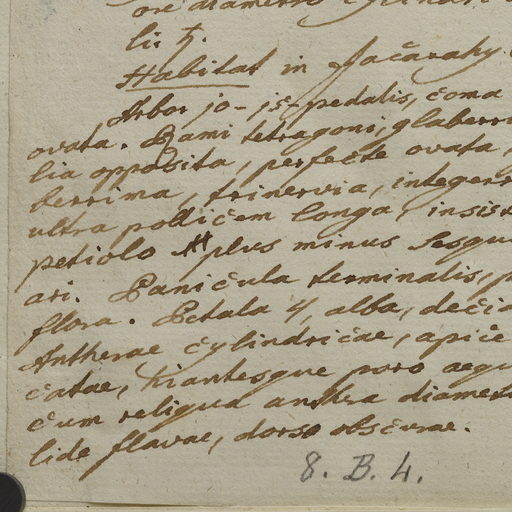 ore diametro cylindri
li ♄.
Habitat in Jačarahy
Arbor 10-15-pedalis, coma
ovata. Rami tetragoni, glaberri
lia opposita, perfecte ovata,
berrima, trinervia, integerr
ultra pollicem longa, insist
petiolo plus minus sesqui
ari. Panicula terminalis, p
flora. Petala 4, alba, decid
Antherae cylindricae, apice
catae, hiantesque poro aequ
cum reliqua anthra diamet
lide flavae, dorso obscurae.
8. B. 4.